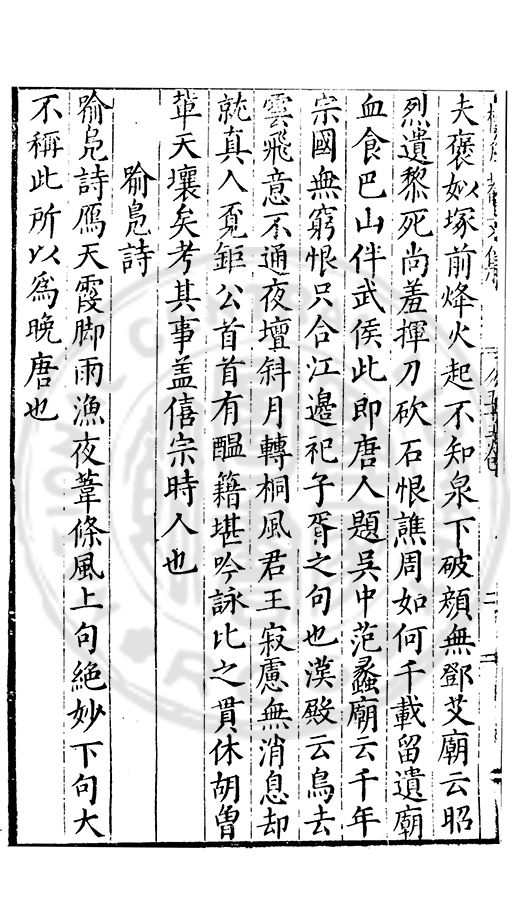 夫褒姒塚前烽火起不知泉下破顔無鄧艾廟云昭
烈遺黎死尚羞揮刀砍石恨譙周如何千載留遺廟
血食巴山伴武侯此即唐人題吳中范蠡廟云千年
宗國無窮恨只合江邊祀子胥之句也漢殿云鳥去
雲飛意不通夜壇斜月轉桐風君王寂慮無消息却
就真人覔鉅公首首有醖籍堪吟詠比之貫休胡曾
軰天壤矣考其事盖僖宗時人也
喻鳬詩
喻鳬詩鴈天霞脚雨漁夜葦條風上句絶妙下句大
不稱此所以爲晚唐也